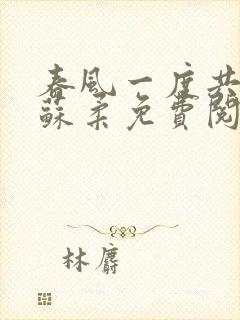 春風一度共
蘇柔免費閱
林麝